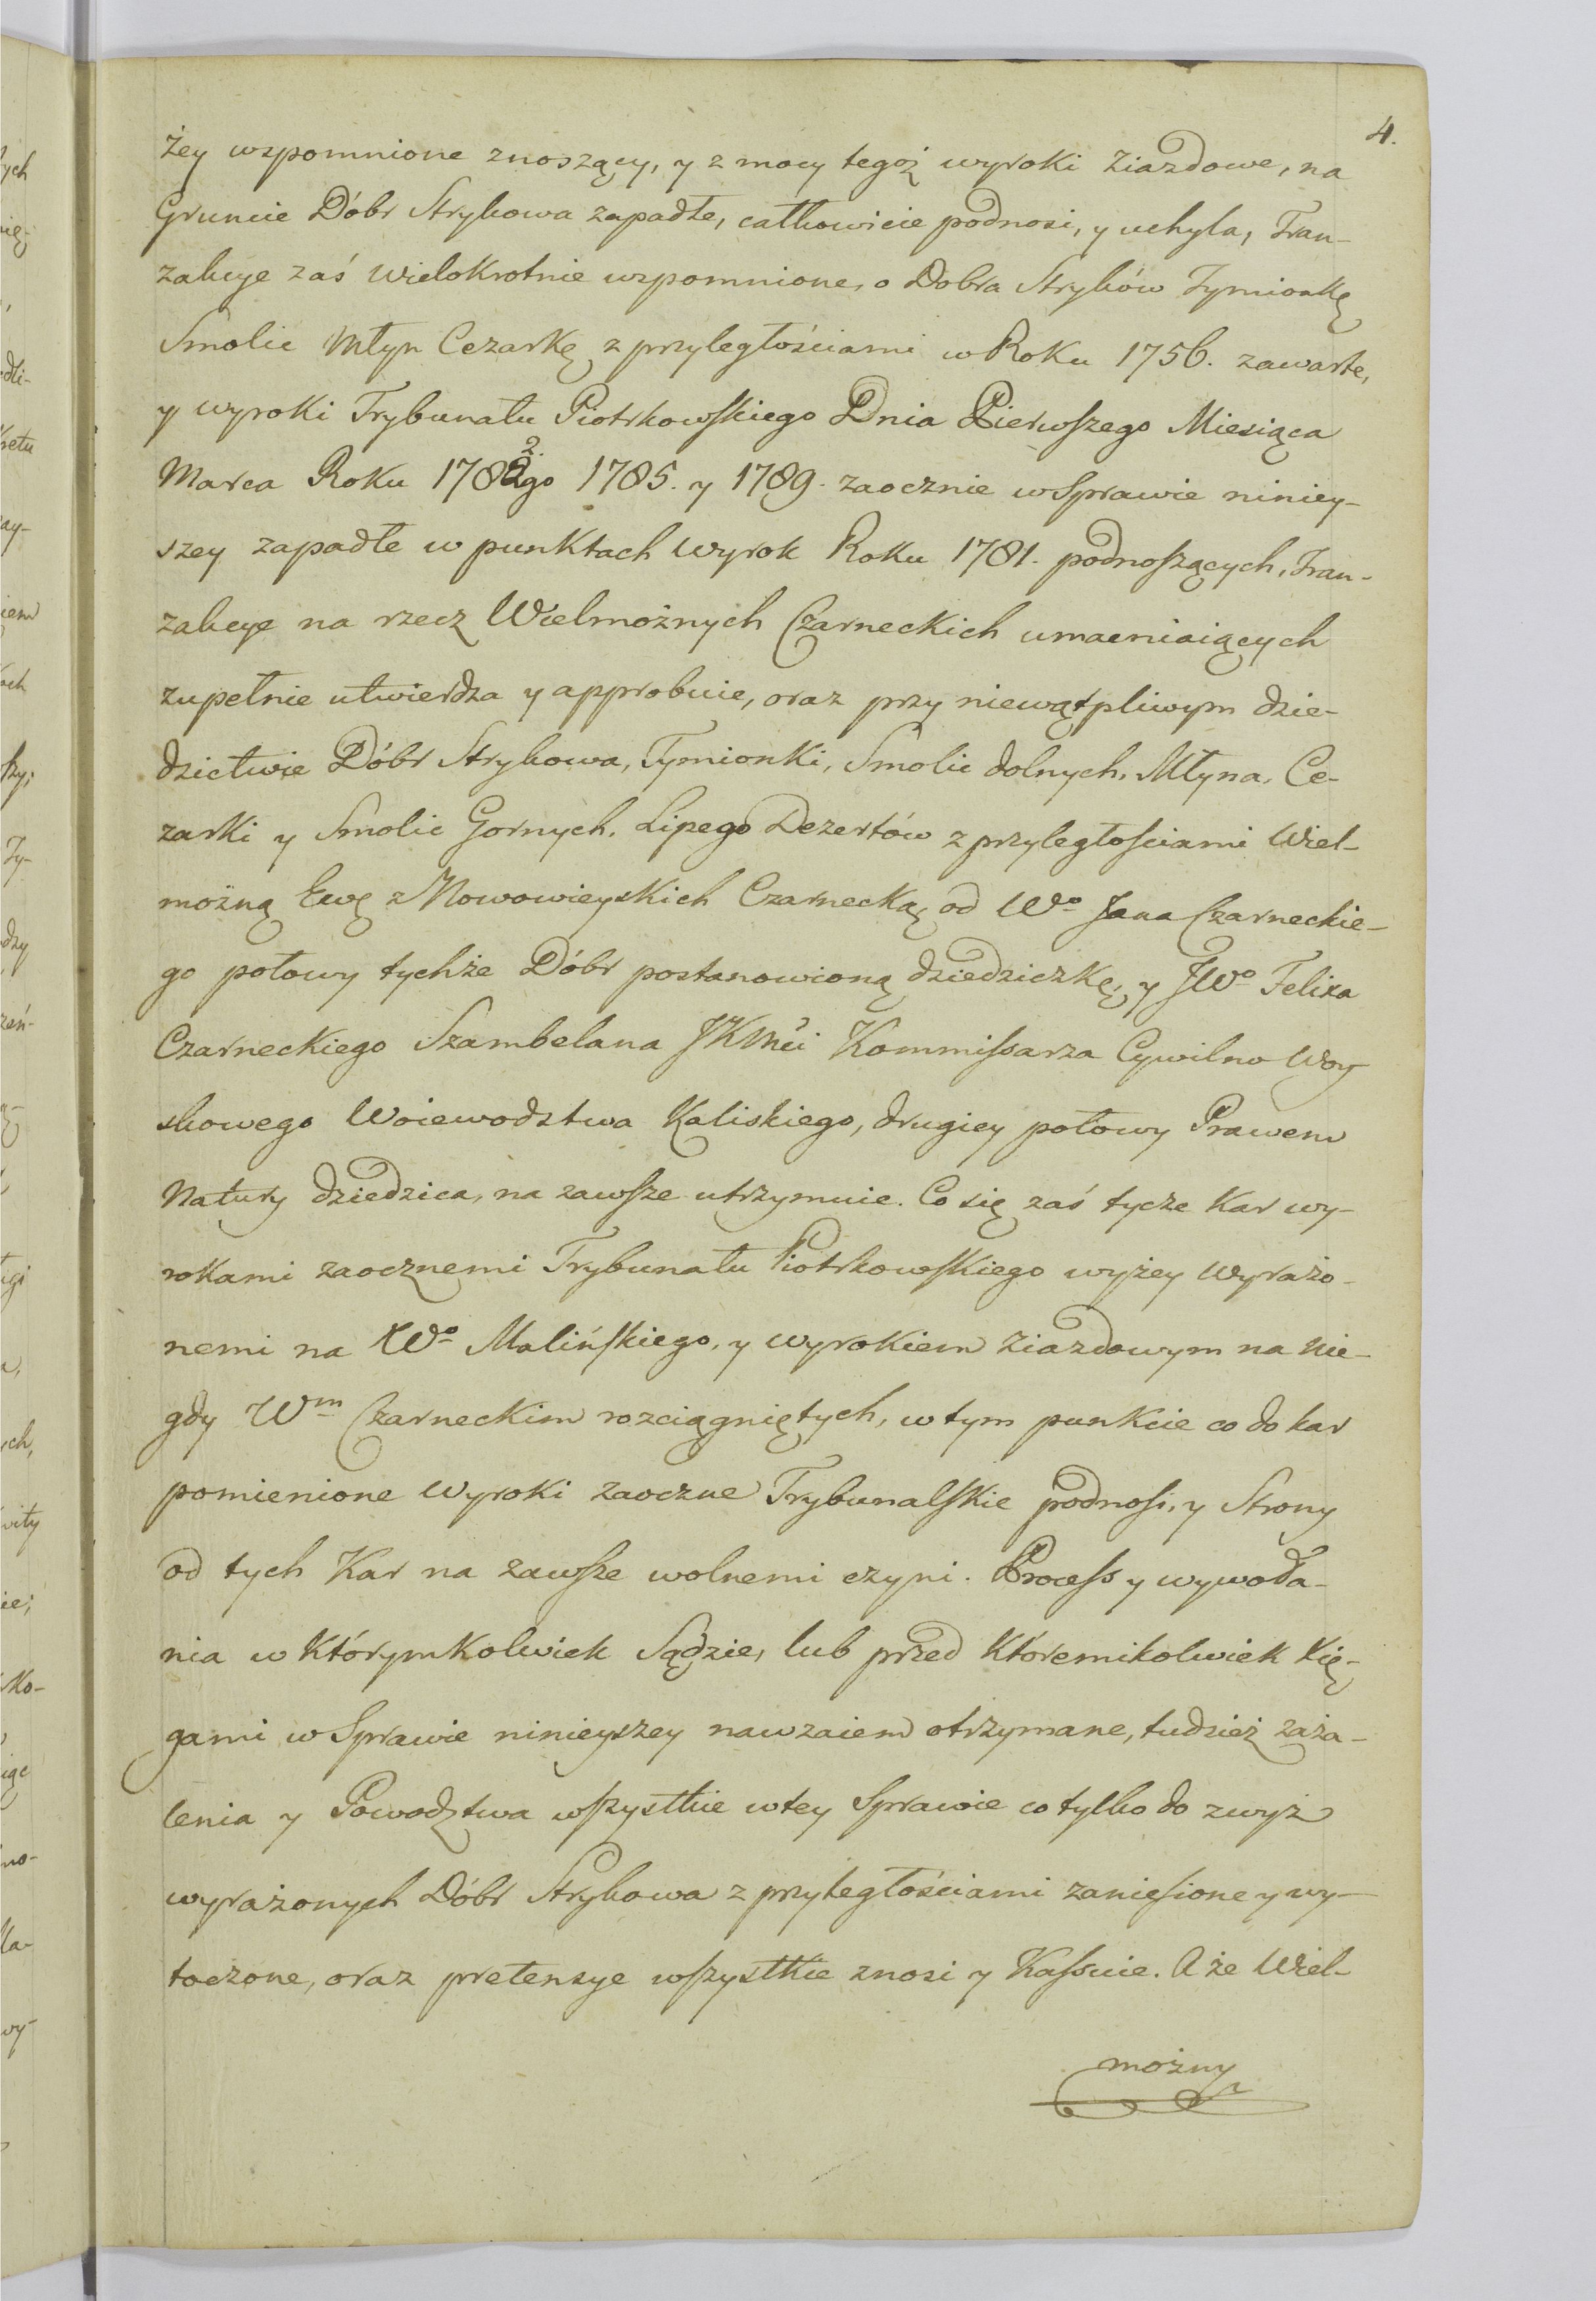 4.
żey wspomnione znoszący, y z mocy tegoż wyroki Ziazdowe, na
Gruncie Dóbr Strykowa zapadłe, całkowicie podnosi, y uchyla, Tran-
zakcye zaś wielokrotnie wspomnione, o Dobra Stryków Tymionkę
Smolic Młyn Cezarkę z przyległościami w Roku 1756. zawarte,
y wyroki Trybunału Piotrkowskiego Dnia Pierwszego Miesiąca
Marca Roku 1782go 1785. y 1789. zaocznie w Sprawie niniey-
szey zapadłe w punktach wyrok Roku 1781. podnoszących, Tran-
zakcye na rzecz Wielmożnych Czarneckich umacniaiących
zupełnie utwierdza y approbuie, oraz przy niewątpliwym dzie-
dzictwie Dóbr Strykowa, Tymionki, Smolic dolnych, Młyna, Ce-
zarki y Smolic Gornych, Lipego Dezertów z przyległosciami Wiel-
możną Ewę z Nowowieyskich Czarnecką, od Wo Jana Czarneckie-
go połowy tychże Dóbr postanowioną dziedziczkę, y JWo Felixa
Czarneckiego Szambelana JKMci Kommissarza Cywilno Woy
skowego Woiewodztwa Kaliskiego, drugiey połowy Prawem
Natury dziedzica, na zawsze utrzymuie. Co się zaś tycze Kar wy-
rokami zaocznemi Trybunału Piotrkowskiego wyżey wyrażo-
nemi na Wo Malińskiego, y wyrokiem Ziazdowym na nie-
gdy Wm Czarneckim rozciągniętych, w tym punkcie co do kar
pomienione wyroki zaoczne Trybunalskie podnosi, y Strony
od tych Kar na zawsze wolnemi czyni. Process y wywoła-
nia w którymkolwiek Sądzie, lub przed któremikolwiek Xię-
gami w Sprawie ninieyszey nawzaiem otrzymane, tudzież zaża-
lenia y Powodztwa wszystkie w tey Sprawie co tylko do zwyż
wyrażonych Dóbr Strykowa z przyległościami zaniesione y wy-
toczone, oraz pretensye wszystkie znosi y Kassuie. A że Wiel-
możny